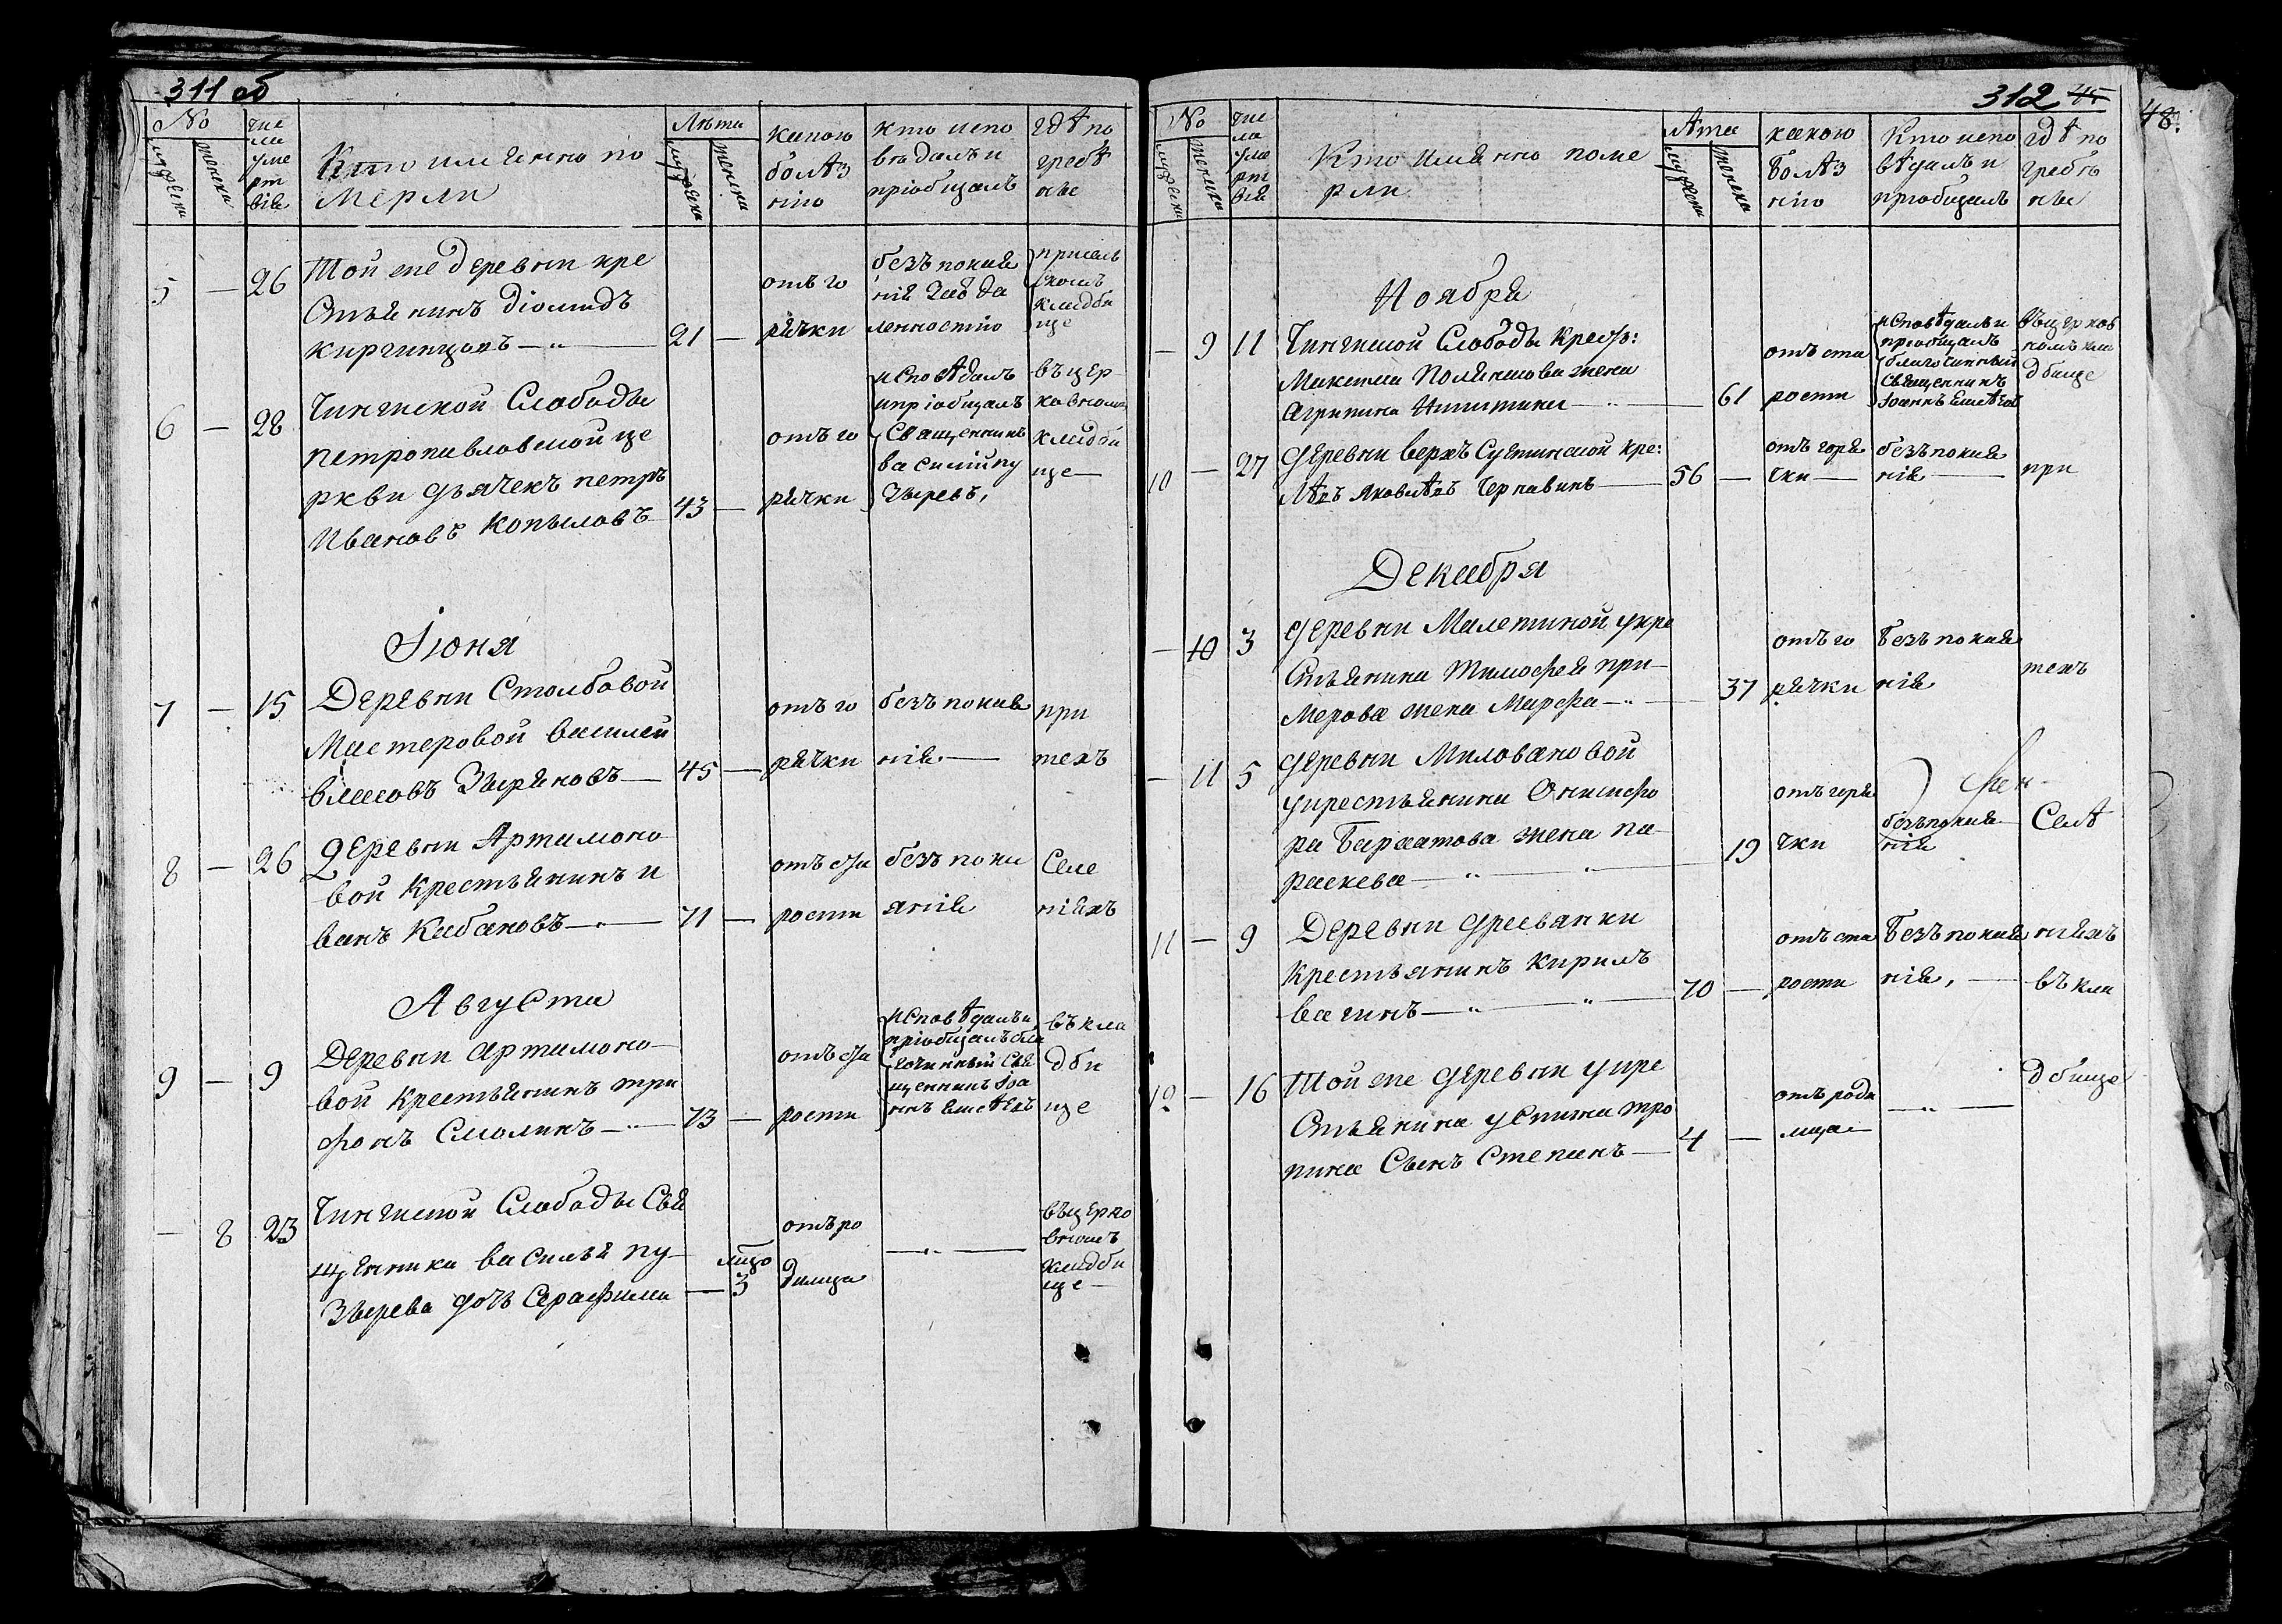 311 об
№ чис ла уме рт вія Кто именно по мерли Лѣта какою болѣз нію кто испо вѣдалъ и пріобщалъ гдѣ по гребѣ ны
мужеска женска мужеска женска
5 — 26 Той же деревни кре
стьянинъ Діомидъ
Киргинцовъ — 21 — отъ го рячки безъ покая нія за вда ленностію при сель скомъ кладби ще
6 — 28 Чингиской Слободы
петропавловской це
ркви дьячекъ петръ
Ивановъ Копыловъ 43 — отъ го рячки исповѣдалъ и пріобщалъ Священникъ василій пу Зыревъ, въ цер ковномъ кладби ще —
Іюня
7 — 15 Деревни Столбовой
Мастеровой василей
власовъ Зыряновъ — 45 — отъ го рячки безъ покая нія. — при техъ
8 — 26 Деревни Артамоно
вой Крестьянинъ и
ванъ Кабановъ — 71 — отъ ста рости безъ пока янія Селе ніяхъ
Августа
9 — 9 Деревни Артамоно
вой Крестьянинъ три
фонъ Смолинъ — 73 — отъ ста рости исповѣдалъ и пріобщалъ бла гочинный Свя щенникъ Іоа ннъ въ кла дби ще
— 8 23 Чингиской Слободы Свя
щенника василья пу
Зырева дочь Серафима — 3 отъ ро димца — въ церко вномъ кладби ще —
312 45
48.
№ чис ла уме рт вія Кто имянно поме рли Лѣта какою болѣз нію Кто испо вѣдалъ и пріобщалъ гдѣ по гребѣ ны
мужеска женска мужеска женска
Ноября
— 9 11 Чингиской Слободы Крест:
Максима Полякова жена
Агрипина Никитина — 61 отъ ста рости исповѣдалъ и пріобщалъ благочинный Священникъ Іоаннъ въ церков номъ кла дбище
10 — 27 Деревни верхъ Суетинской кре:
Яковлевъ Чернавинъ — 56 — отъ горя чки — безъ покая нія — при
Декабря
— 10 3 деревни Малетиной у кре
стьянина Тимофея при
мерова жена Марфа — 37 отъ го рячки безъ покая нія техъ
— 11 5 деревни Миловановой
у крестьянина Онисифо
ра Бархатова жена па
раскева — 19 отъ горя чки безъ покая нія Селѣ
11 — 9 Деревни Дресвянки
Крестьянинъ Кирилъ
вагинъ — 70 — отъ ста рости безъ покая нія, — ніяхъ въ кла
12 — 16 Той же деревни у кре
стьянина устина тро
пина Сынъ Степанъ — 4 — отъ роди мца — дбище